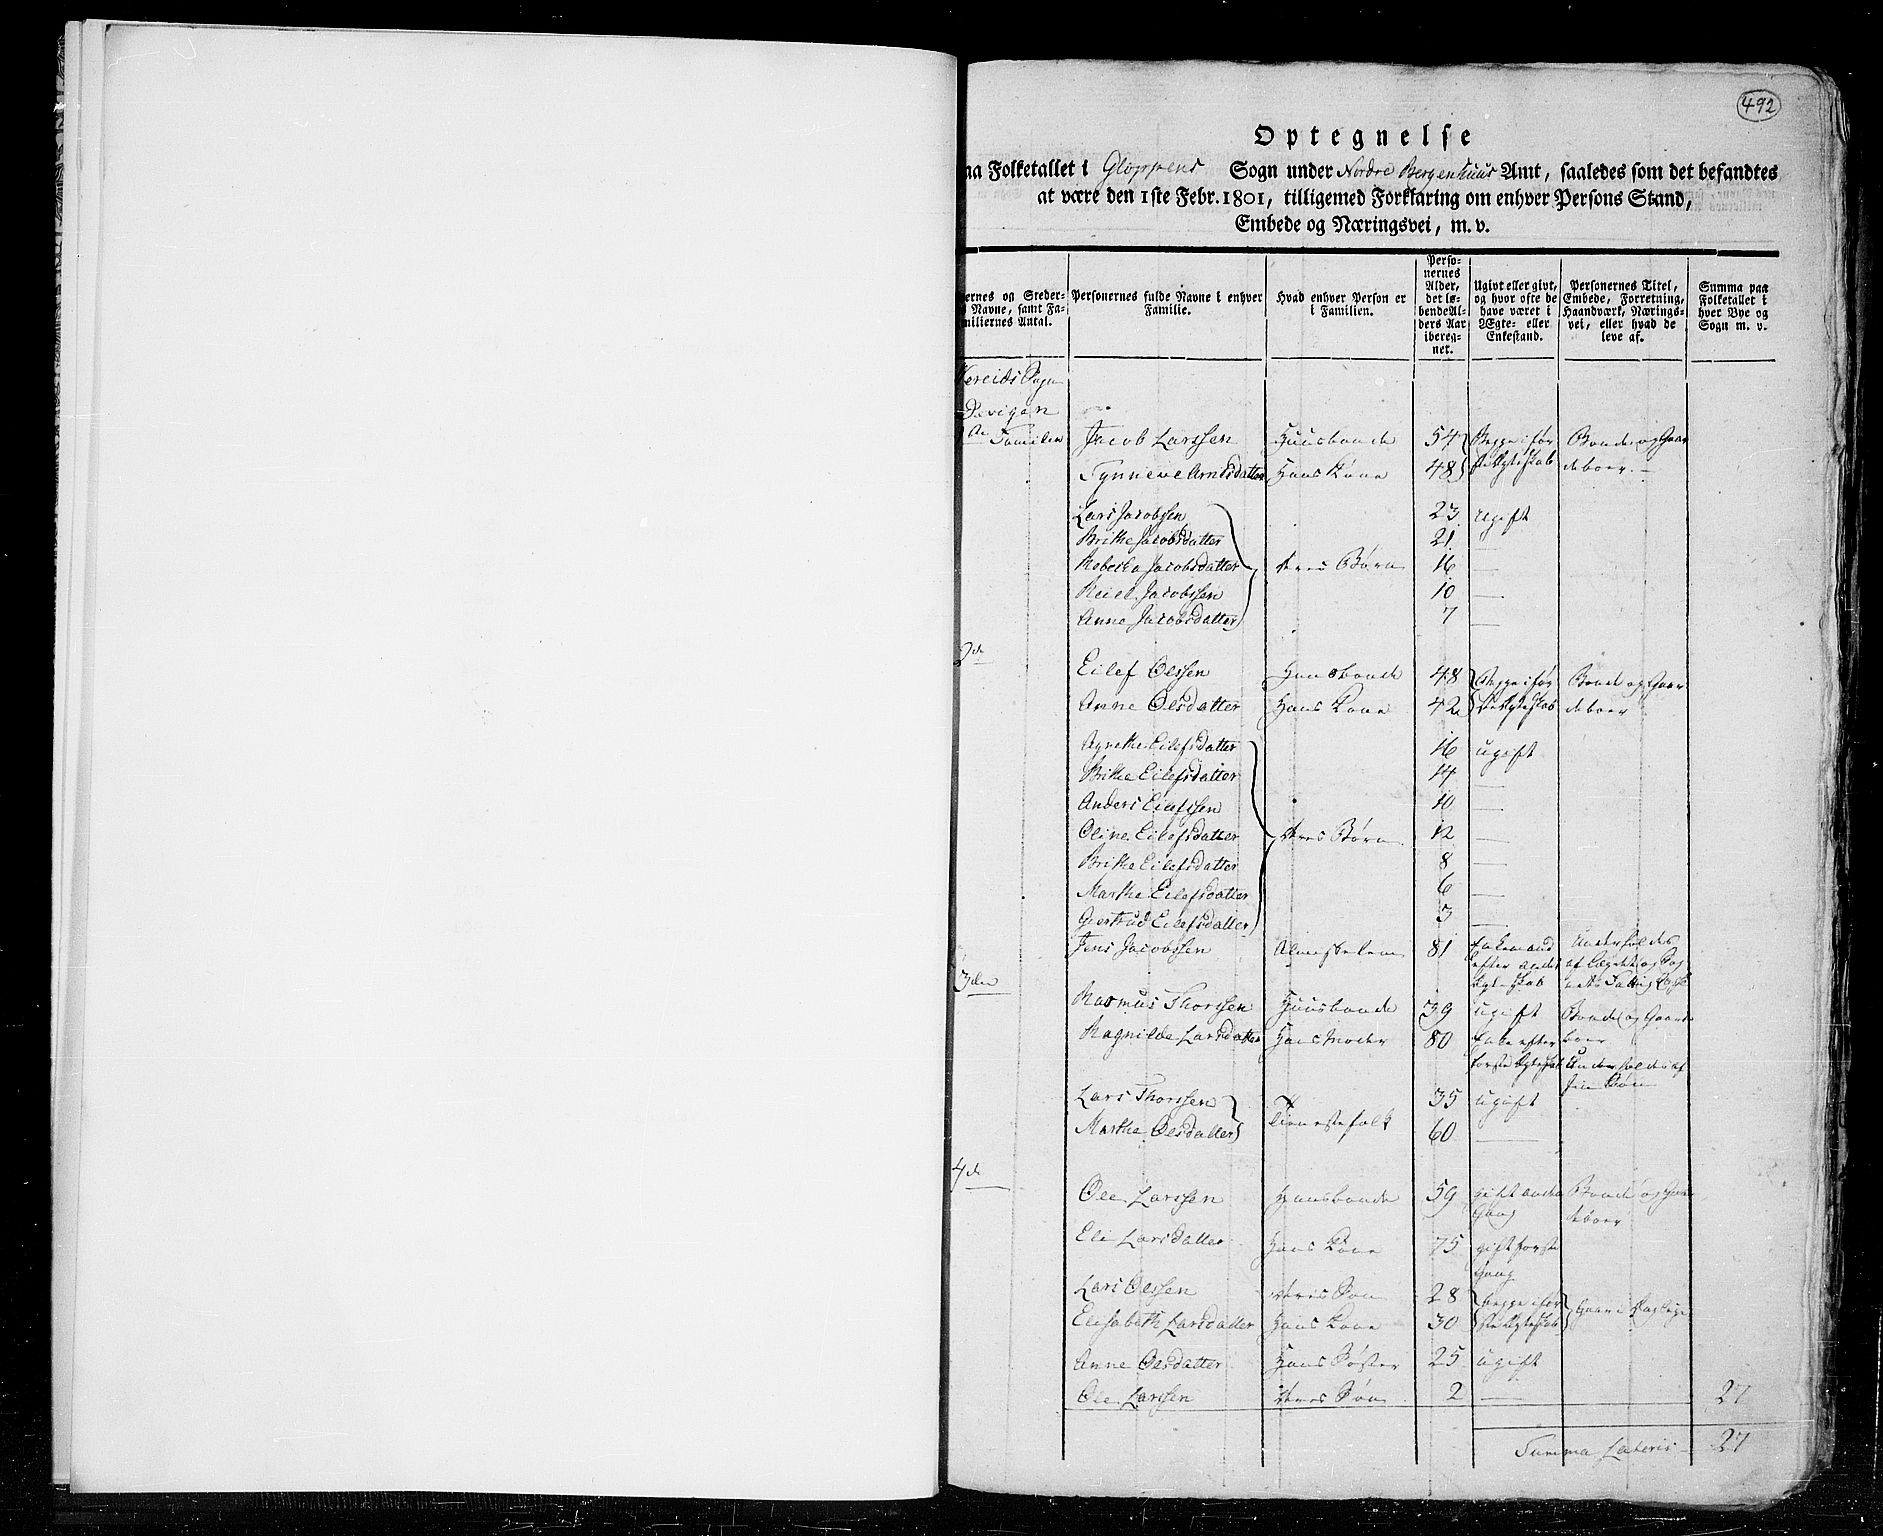 492
Optegnelse
aa Folketallet i Gloppens Sogn under Nordre Bergenhuus Amt, saaledes som det befandtes
at være den 1ste Febr. 1801, tilligemed Forklaring om enhver Persons Stand,
Embede og Næringsvei, m. v.
ernes og Steder- Navne, samt Fa- miliernes Antal.
Personernes fulde Navne i enhver Familie.
Hvad enhver Person er i Familien.
Perso- nernes Alder, det lø- bende Al- ders Aar iberegnet.
Ugivt eller givt, og hvor ofte de have været i Ægte- eller Enkestand.
Personernes Titel, Embede, Forretning, Haandværk, Nærings- vei, eller hvad de leve af.
Summa paa Folketallet i hver Bye og Sogn m. v.
Vereids Sogn
Devigen
Familie Jacob Larssen Huusbonde 54 Begge i før Bonde og Gaar
Synneve Arnesdatter Hans Kone 48 ste Ægteskab deboer
Lars Jacobsen 23 ugift
Brithe Jacobsdatter 21 —
Rebecka Jacobsdatter deres Børn 16 —
Jacobssen 10 —
Anne Jacobsdatter 7 —
2de
Eilef Olssen Huusbonde 48 Begge i før Bonde og Gaar
Anne Olsdatter Hans Kone 42 ste Ægteskab deboer
Agnethe Eilefsdatter 16 ugift
Brithe Eilefsdatter 14 —
Anders Eilefssen 10 —
Oline Eilefsdatter deres Børn 12 —
Brithe Eilefsdatter 8 —
Marthe Eilefsdatter 6 —
Giertrud Eilefsdatter 3 —
Jens Jacobssen Almisselem 81 Enkemand Underholdes
efter andet af Lægdet og Sog
Ægteskab nets Fattig Casse
3die
Rasmus Thorssen Huusbonde 39 ugift Bonde og Gaard
Ragnilde Larsdatter Hans Moder 80 Enke efter boer
første Ægteskab Underholdes af
sin Søn
Lars Thorssen 35 ugift
Tienestefolk
Marthe Olsdatter 60 —
4de
Ole Larssen Huusbonde 59 gift anden Bonde og Gaar
Gang deboer
Eli Larsdatter Hans Kone 75 gift første
Gang
Lars Olssen deres Søn 28 begge i før
Elisabeth Larsdatter Hans Kone 30 ste Ægteskab
Anne Olsdatter Hans Søster 25 ugift
Ole Larssen deres Søn 2 — 27
Summa Lateris 27